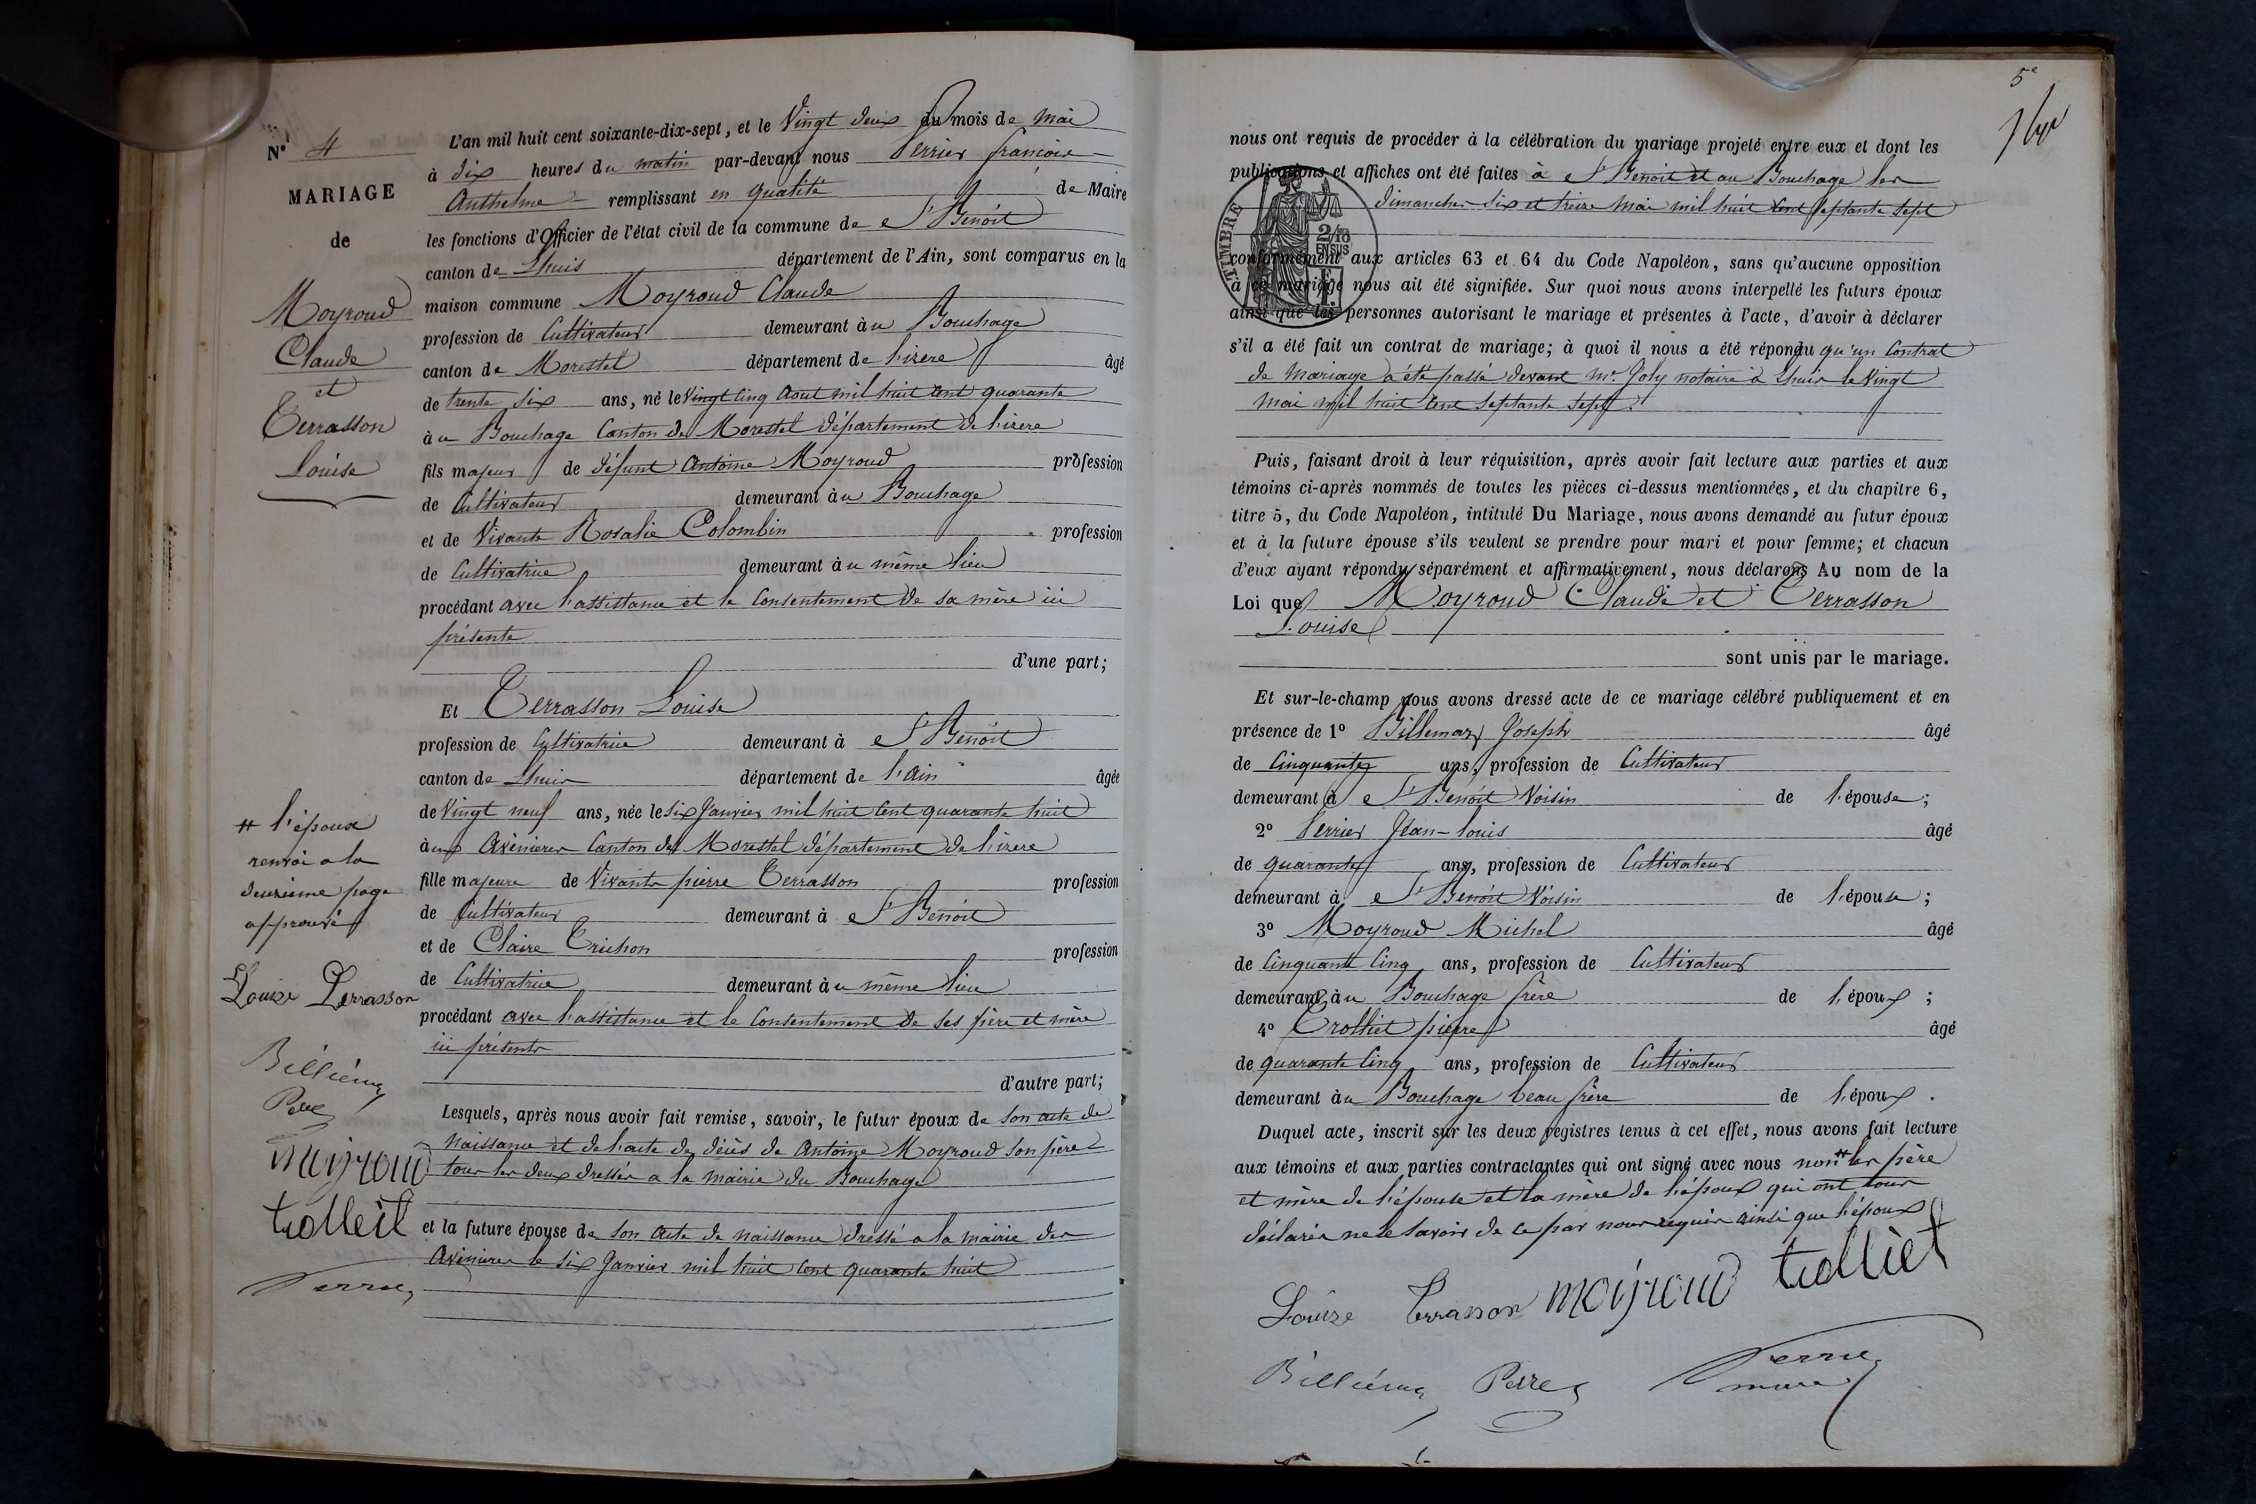 N° 4
MARIAGE
de
Moyroud
Claude
et
Terrasson
Louise
L'an mil huit cent soixante-dix-sept, et le Vingt deux du mois de Mai
à dix heures du matin par-devant nous Perrier françois
Anthelme remplissant en qualité de Maire
les fonctions d'Officier de l'état civil de la commune de St Benoit
canton de Lhuis département de l'Ain, sont comparus en la
maison commune Moyroud Claude
profession de Cultivateur demeurant à u Bouchage
canton de Morestel département de l'isere âgé
de trente six ans, né le Vingt cinq Aout mil huit cent quarante
à u Bouchage Canton de Morestel département de l'isere
fils majeur de défunt Antoine Moyroud profession
de Cultivateur demeurant à u Bouchage
et de Vivante Rosalie Colombin profession
de Cultivatrice demeurant à u même lieu
procédant avec l'assistance et le Consentement de sa mère ici
présente
d'une part;
Et Terrasson Louise
profession de Cultivatrice demeurant à St Benoit
canton de Lhuis département de l'ain âgée
de Vingt neuf ans, née le six Janvier mil huit cent quarante huit
à ux Avenieres Canton de Morestel département de l'isere
fille majeure de Vivants pierre Terrasson profession
de Cultivateur demeurant à St Benoit
et de Claire Trichon profession
de Cultivatrice demeurant à u même lieu
procédant avec l'assistance et le Consentement de ses père et mère
ici présents
d'autre part;
Lesquels, après nous avoir fait remise, savoir, le futur époux de son acte de
Naissance et de l'acte de décès de Antoine Moyroud son père
tous les deux dressés a la mairie du Bouchage
et la future épouse de son acte de naissance dressé a la mairie des
Avenieres le six Janvier mil huit cent quarante huit
# l'époux
renvoi a la
deuxieme page
approuvé
Louise Terrasson
Billiémaz
Perrez
moyroud
trolliet
Perrier
5e
nous ont requis de procéder à la célébration du mariage projeté entre eux et dont les
publications et affiches ont été faites à St Benoit et au Bouchage les
dimanches six et treize Mai mil huit cent septante sept
TIMBRE
2/10
EN SUS
conformément aux articles 63 et 64 du Code Napoléon, sans qu'aucune opposition
à ce mariage nous ait été signifiée. Sur quoi nous avons interpellé les futurs époux
ainsi que les personnes autorisant le mariage et présentes à l'acte, d'avoir à déclarer
s'il a été fait un contrat de mariage; à quoi il nous a été répondu qu'un Contrat
de Mariage a été passé devant Mr. Joly notaire à Lhuis le Vingt
Mai mil huit cent septante sept.
Puis, faisant droit à leur réquisition, après avoir fait lecture aux parties et aux
témoins ci-après nommés de toutes les pièces ci-dessus mentionnées, et du chapitre 6,
titre 5, du Code Napoléon, intitulé Du Mariage, nous avons demandé au futur époux
et à la future épouse s'ils veulent se prendre pour mari et pour femme; et chacun
d'eux ayant répondu séparément et affirmativement, nous déclarons Au nom de la
Loi que Moyroud Claude et Terrasson
Louise
sont unis par le mariage.
Et sur-le-champ nous avons dressé acte de ce mariage célébré publiquement et en
présence de 1° Billemaz Joseph âgé
de Cinquante ans, profession de Cultivateur
demeurant à St Benoit Voisin de l'épouse;
2° Perrier Jean-louis âgé
de quarante ans, profession de Cultivateur
demeurant à St Benoit Voisin de l'épouse;
3° Moyroud Michel âgé
de Cinquante Cinq ans, profession de Cultivateur
demeurant à u Bouchage frère de l'époux;
4° Trolliet pierre âgé
de quarante Cinq ans, profession de Cultivateur
demeurant à u Bouchage beau frère de l'époux.
Duquel acte, inscrit sur les deux registres tenus à cet effet, nous avons fait lecture
aux témoins et aux parties contractantes qui ont signé avec nous non # les père
et mère de l'épouse et la mère de l'époux qui ont tous
déclarés ne le savoir de ce par nous requis ainsi que l'époux
Louize Terrasson moyroud trolliet
Billiémaz Perrez Perrier
maire